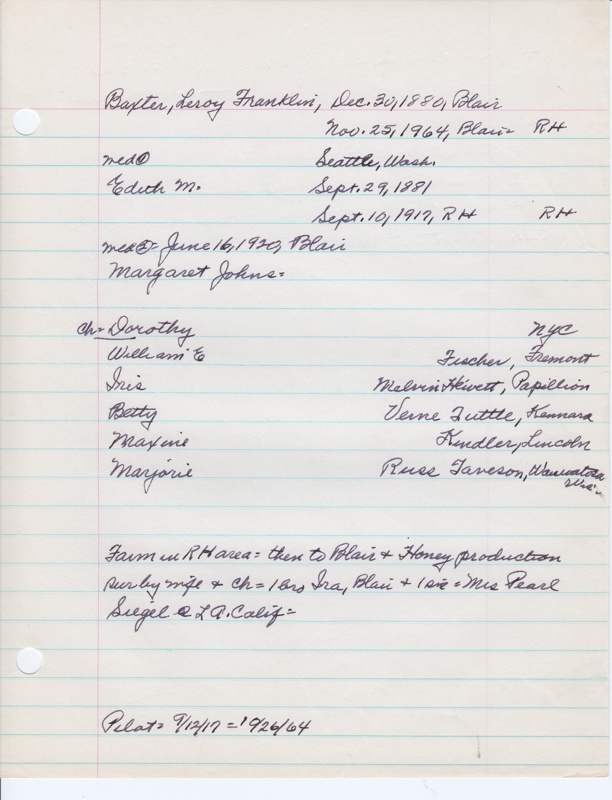 Baxter, Leroy Franklin, Dec. 30, 1880, Blair
Nov. 25, 1964, Blair= RH
med① Seattle, Wash.
Edith M. Sept. 29, 1881
Sept. 10, 1917, RH RH
med②= June 16, 1920, Blair
Margaret Johns=
ch= Dorothy NYC
William E Fischer, Fremont
Iris Melvin Hewett, Papillion
Betty Verne Tuttle, Kennard
Maxine Kindler, Lincoln
Marjorie Russ Taveson, Wauwatosa
Wis.
Farm in RH area= then to Blair + Honey production
sur by wife + ch= 1 bro Ira, Blair + 1 sis= Mrs Pearl
Siegel @ LA. Calif=
Pilot= 9/12/17 =